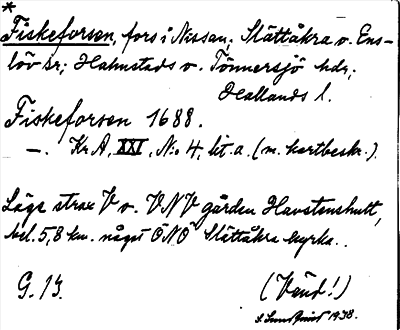 *
Fiskeforsen, fors i Nissan; Slättåkra o. Ens-
löv sn; Halmstads o. Tönnersjö hdr;
Hallands l.
Fiskeforsen 1688.
—. Kr A, XXI, No 4, lit. a. (m. kartbeskr.).
Låge strax V o. VNV gården Havstenshult,
bel. 5,8 km. något ÖNÖ Slättåkra kyrka..
G. 13. (Vänd!)
1938.